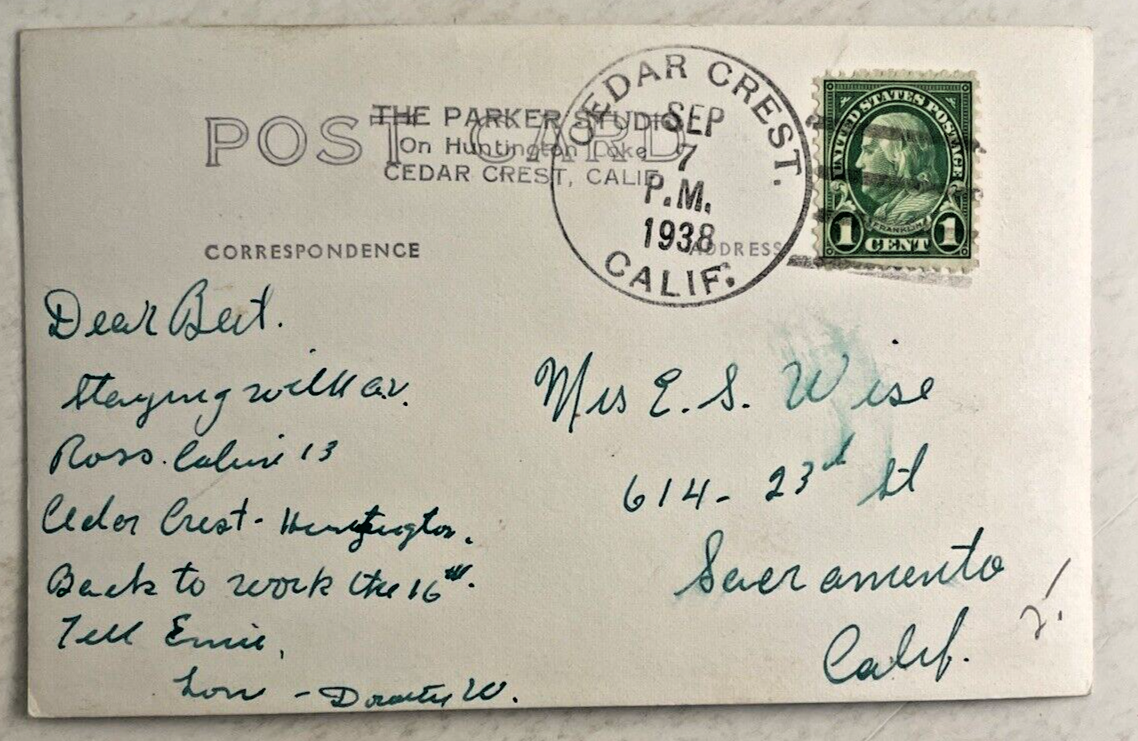 POST CARD
THE PARKER STUDIO
On Huntington Lake
CEDAR CREST, CALIF.
CEDAR CREST.
SEP
7
P.M.
1938
CALIF.
UNITED STATES POSTAGE
FRANKLIN
1 CENT 1
CORRESPONDENCE
ADDRESS
Dear Bert.
Staying with
Ross. Cabin 13
Cedar Crest - Huntington.
Back to work the 16th.
Tell Ernie,
Love - Dorothy W.
Mrs E. S. Wise
614 - 23rd St
Sacramento
Calif.